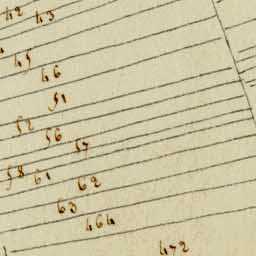 42 43
45
46
51
52
56
57
58 61
62
63
464
472